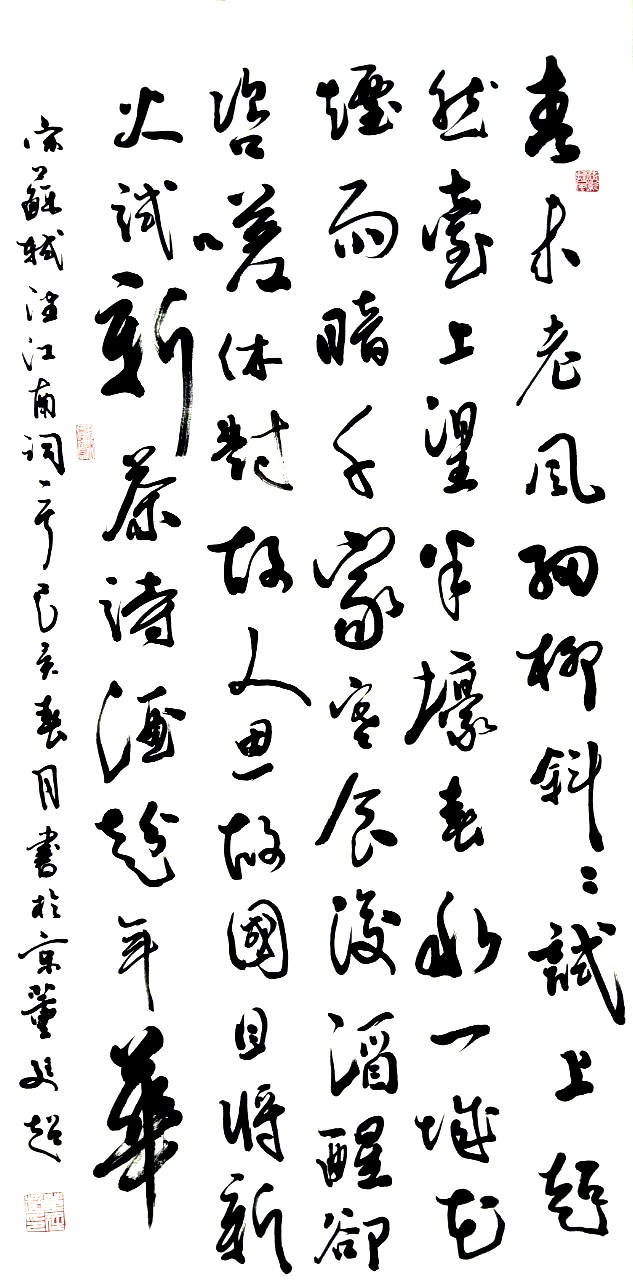 春未老風細柳斜〻試上超
然臺上望半壕春水一城花
煙雨暗千家寒食後酒醒卻
咨嗟休對故人思故國且將新
火試新茶詩酒趁年華
宋蘇軾望江南詞一首己亥春月書於京董廷超